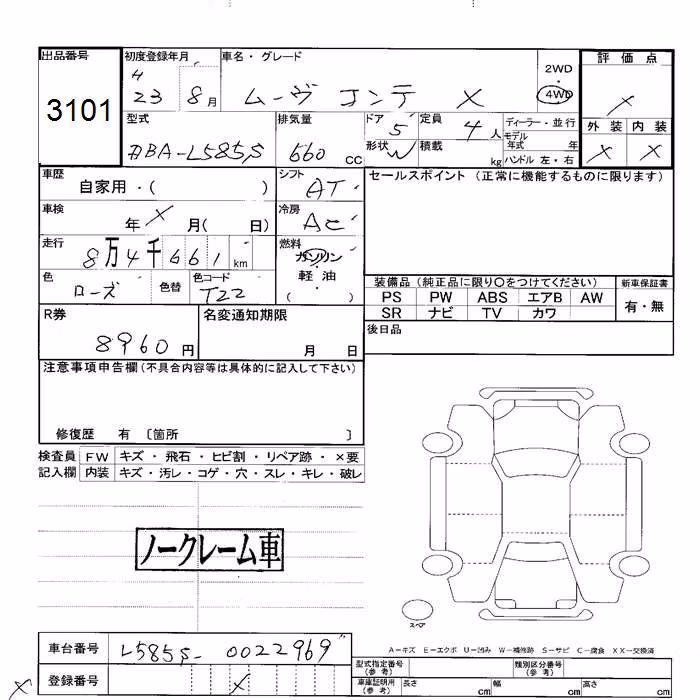 出品番号
3101
初度登録年月
4
23 8月
車名・グレード
ムーヴ コンテ X
2WD
・
4WD
評価点
X
外装 内装
X X
型式
DBA-L585S
排気量
660 cc
ドア 5
形状 W
定員 4人
積載 kg
ディーラー・並行
モデル年式 年
ハンドル 左・右
車歴
自家用・( )
シフト
AT
車検
年 X 月( 日)
冷房
AC
走行
8万4千661km
燃料
ガソリン
・
軽油
( )
色
ローズ
色替
色コード
T22
セールスポイント (正常に機能するものに限ります)
装備品 (純正品に限り○をつけてください)
PS PW ABS エアB AW
SR ナビ TV カワ
新車保証書
有・無
後日品
R券
8960円
名変通知期限
月 日
注意事項申告欄(不具合内容等は具体的に記入して下さい)
修復歴 有 〔箇所 〕
検査員記入欄
FW キズ・飛石・ヒビ割・リペア跡・×要
内装 キズ・汚レ・コゲ・穴・スレ・キレ・破レ
ノークレーム車
スペア
A－キズ E－エクボ U－凹み W－補修跡 S－サビ C－腐食 XX－交換済
車台番号
L585S-0022969
登録番号
X
X
型式指定番号(参考)
類別区分番号(参考)
車庫証明用(参考)
長さ cm
幅 cm
高さ cm